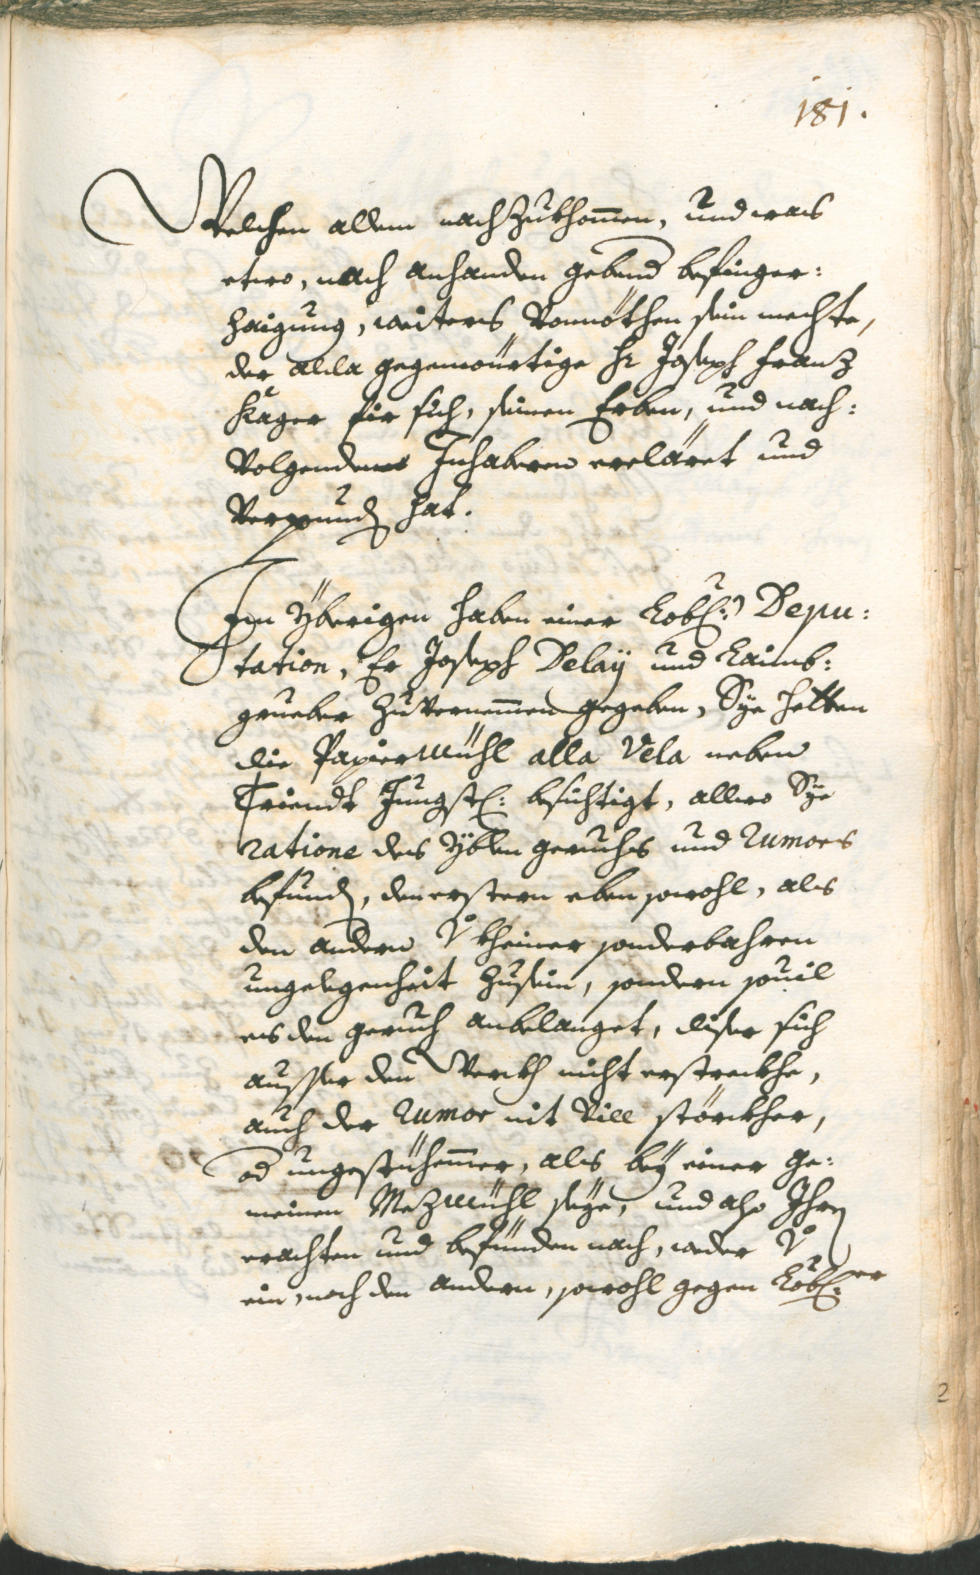 181.
Welchen allem nachzukhom̄en, und was
etwo, nach anhanden gebend befinger:
Zaigung, weiters Vonnöthen sein mechte,
der alda gegenwürtige Hr Joseph Franz
Kager für sich, seinen Erben, und nach:
Volgenden Inhabern erclärt und
Verpundten hat.
Im Ÿbrigen haben einer Löbl: Depu:
tation, Er Joseph Delaÿ und Laimb:
grueber zuvernem̄en gegeben, Sye hetten
die Papiermühl alla Vela neben
Triendt Jüngstl: besichtigt, allwo Sye
ratione des Ÿblen geruchs und Rumors
befunden, den erstern eben sowohl, als
den andern V kheiner sonderbahren
ungelegenheit zusein, sondern sovil
es den geruch anbelanget, diser sich
ausser den Werkh nicht erstreckhe,
auch der Rumor nit Vill störckher,
od ungestühem̄er, als beÿ einer ge:
meinen Mezmühl seÿe, und also Ihrn
erachten und befünden nach, weder V
ein, noch den andern, sowohl gegen Löbl:er
2